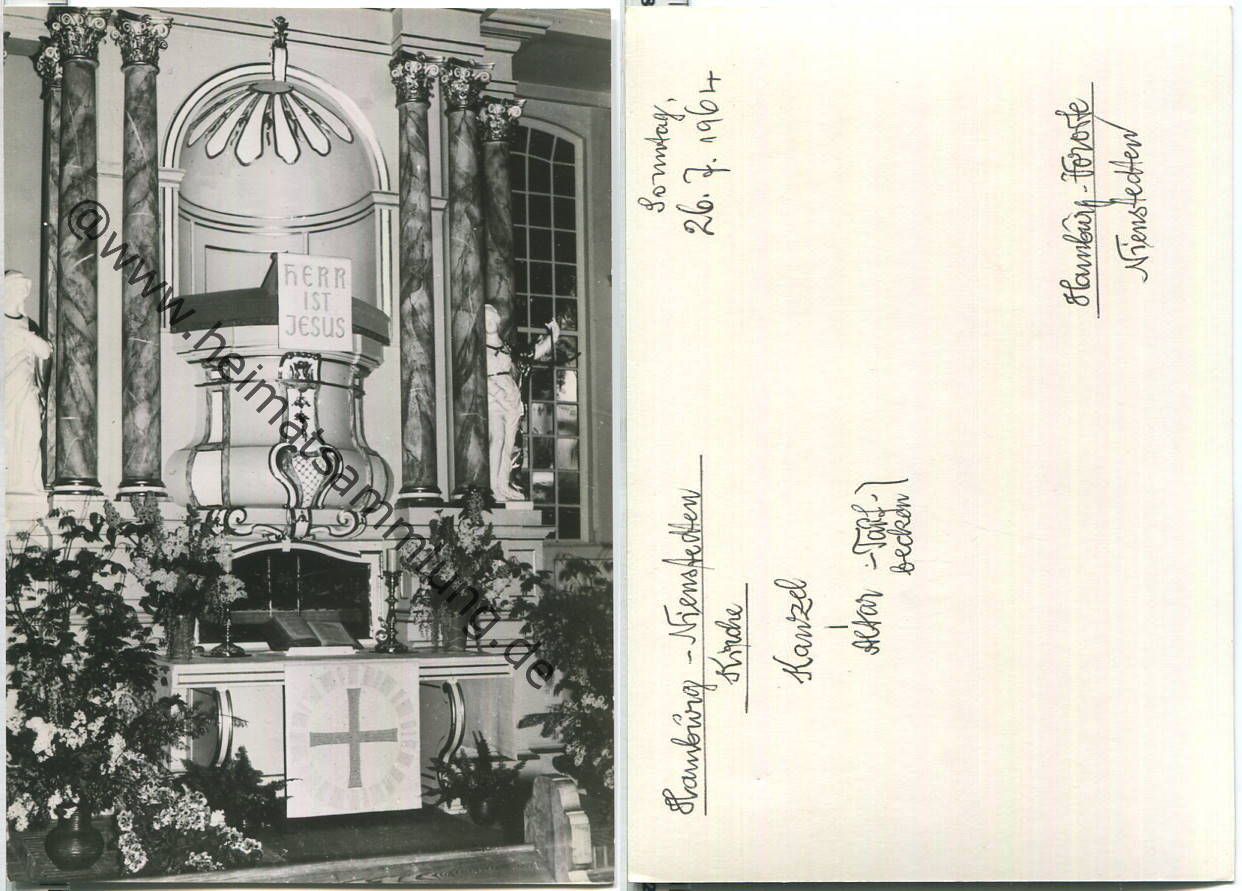 HERR
IST
JESUS
@www.heimatsammlung.de
Sonntag,
26. 7. 1964
Hamburg - Nienstedten
Kirche
Kanzel
Altar :-Tauf-)
becken)
Hamburg - Vororte
Nienstedten